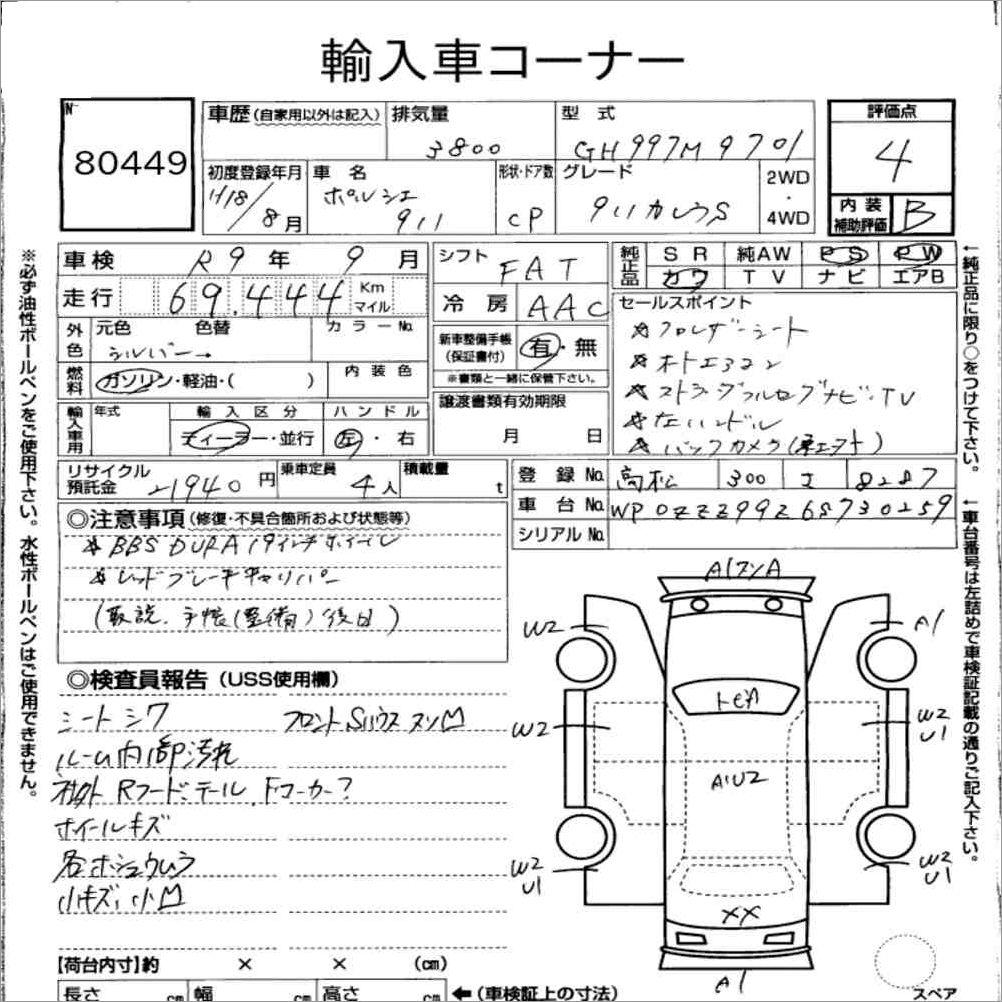 輸入車コーナー
No
80449
車歴(自家用以外は記入)
排気量
3800
型式
GH997M9701
評価点
4
内装補助評価
B
初度登録年月
H18/8月
車名
ポルシェ
911
形状・ドア数
CP
グレード
911カレラS
2WD
・
4WD
※必ず油性ボールペンをご使用下さい。水性ボールペンはご使用できません。
車検
R9年9月
走行
69,444
Km
マイル
シフト
FAT
冷房
AAC
純正品
SR 純AW PS PW
カワ TV ナビ エアB
外色
元色
シルバー
色替
→
カラーNo.
燃料
ガソリン・軽油・( )
内装色
新車整備手帳(保証書付)
有・無
※書類と一緒に保管下さい。
セールスポイント
☆フロレザーシート
☆オートエアコン
☆ストラーダフルセグナビ・TV
☆左ハンドル
☆バックカメラ
輸入車用
年式
輸入区分
ディーラー・並行
ハンドル
左・右
譲渡書類有効期限
月 日
←純正品に限り○をつけて下さい。
リサイクル預託金
21940円
乗車定員
4人
積載量
t
登録No.
高松
300
8287
車台No.
WP0ZZZ99Z6S730259
シリアルNo.
←車台番号は左詰めで車検証記載の通りご記入下さい。
◎注意事項(修復・不具合箇所および状態等)
☆BBS DURA 19インチホイール
☆レッドブレーキキャリパー
(取説、手帳(整備)後日)
◎検査員報告(USS使用欄)
シートシワ
フロントSハウススソM
ルーム内部汚れ
社外Rフード、テール、Fコーカー?
ホイールキズ
各ホシュウムラ
小キズ、小M
A1スソA
W2
A1
トビA
W2
W2
U1
A1U2
W2
U1
W2
U1
XX
A1
スペア
【荷台内寸】約 × × (cm)
長さ cm
幅 cm
高さ cm
←(車検証上の寸法)